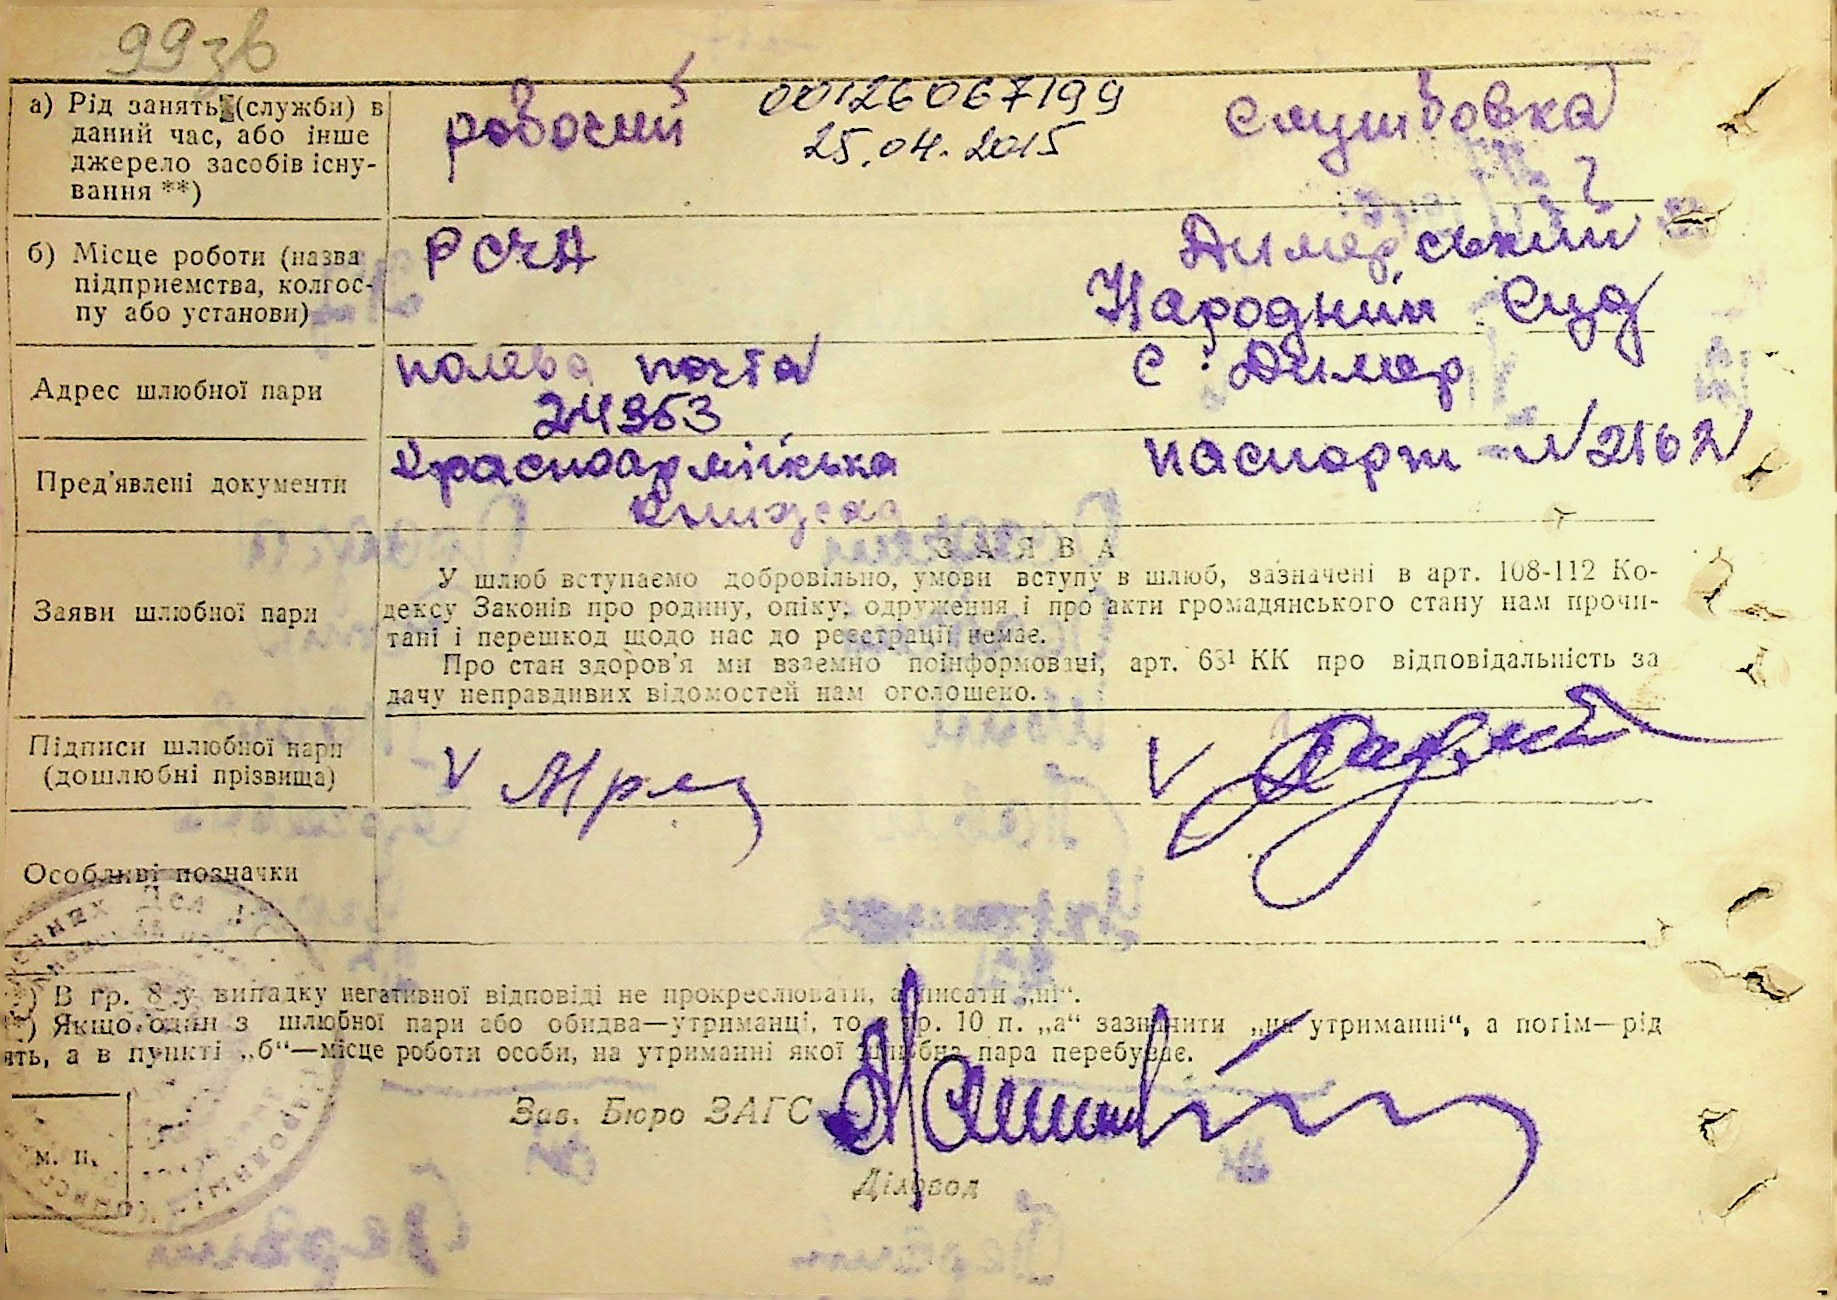 99зв
а) Рід занять (службы) в
даний час, або інше
джерело засобів існу-
вання **)
робочий
00126067199
25.04.2015
службовка
б) Місце роботи (назва
підприємства, колгос-
пу або установи)
РСЧА
Димерський
Народний Суд
Адрес шлюбної пари
полева почта
24953
с. Димер
Пред'явлені документи
Красноармійська
книжска
паспорт №2162
ЗАЯВА
Заяви шлюбної пари
У шлюб вступаємо добровільно, умови вступу в шлюб, зазначені в арт. 108-112 Ко-
дексу Законів про родину, опіку, одруження і про акти громадянського стану нам прочи-
тані і перешкод щодо нас до реєстрації немає.
Про стан здоров'я ми взаємно поінформовані, арт. 63¹ КК про відповідальність за
дачу неправдивих відомостей нам оголошено.
Підписи шлюбної пари
(дошлюбні прізвища)
V
V
Особливі позначки
*) В гр. 8 у випадку негативної відповіді не прокреслювати, а писати „ні“.
**) Якщо один з шлюбної пари або обидва—утриманці, то в гр. 10 п. „а“ зазначити „на утриманні“, а потім—рід
ять, а в пункті „б“—місце роботи особи, на утриманні якої шлюбна пара перебуває.
Зав. Бюро ЗАГС
м. п.
Діловод